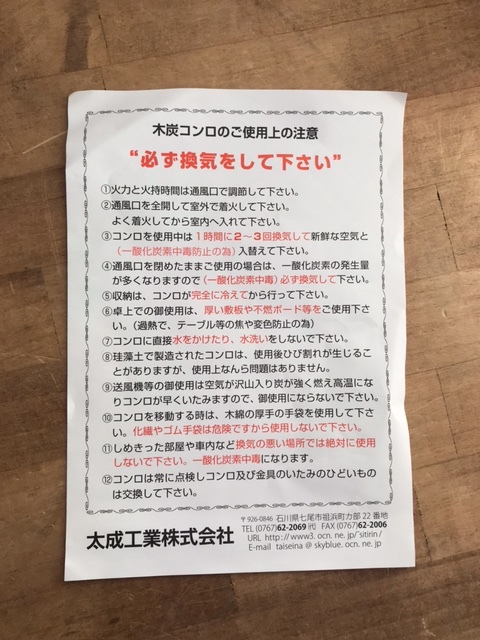 木炭コンロのご使用上の注意
“必ず換気をして下さい”
①火力と火持時間は通風口で調節して下さい。
②通風口を全開して室外で着火して下さい。
よく着火してから室内へ入れて下さい。
③コンロを使用中は1時間に2〜3回換気して新鮮な空気と
（一酸化炭素中毒防止の為）入替えて下さい。
④通風口を閉めたままご使用の場合は、一酸化炭素の発生量
が多くなりますので（一酸化炭素中毒）必ず換気して下さい。
⑤収納は、コンロが完全に冷えてから行って下さい。
⑥卓上での御使用は、厚い敷板や不燃ボード等をご使用下さ
い。（過熱で、テーブル等の焦や変色防止の為）
⑦コンロに直接水をかけたり、水洗いをしないで下さい。
⑧珪藻土で製造されたコンロは、使用後ひび割れが生じるこ
とがありますが、使用上なんら問題はありません。
⑨送風機等の御使用は空気が沢山入り炭が強く燃え高温にな
りコンロが早くいたみますので、御使用にならないで下さい。
⑩コンロを移動する時は、木綿の厚手の手袋を使用して下さ
い。化繊やゴム手袋は危険ですから使用しないで下さい。
⑪しめきった部屋や車内など換気の悪い場所では絶対に使用
しないで下さい。一酸化炭素中毒になります。
⑫コンロは常に点検しコンロ及び金具のいたみのひどいもの
は交換して下さい。
太成工業株式会社
〒926-0846 石川県七尾市祖浜町カ部22番地
TEL (0767)62-2069㈹ FAX (0767)62-2006
URL http://www3.ocn.ne.jp/~sitirin/
E-mail taiseina@skyblue.ocn.ne.jp